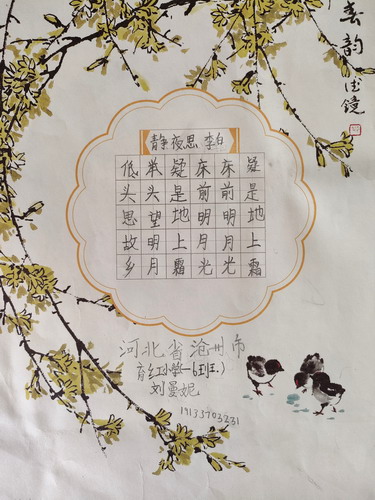 春韵
静夜思 李白
疑是地上霜
床前明月光
床前明月光
疑是地上霜
举头望明月
低头思故乡
河北省沧州市
育红小学一(6班.)
刘曼妮
19133703231